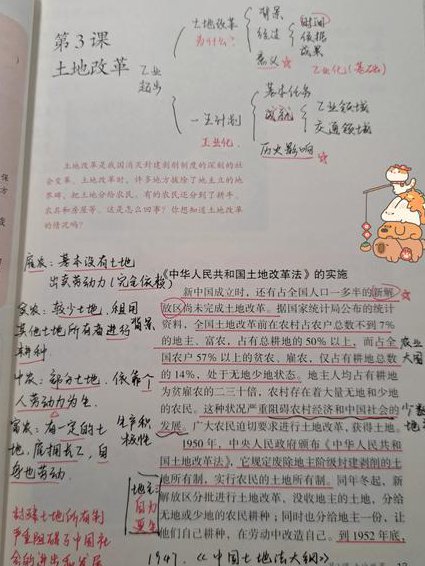 第3课
土地改革
土地改革
为什么?
背景
经过
意义
时间
依据
成果
工业化(基础)
工业
起步
一五计划
工业化
基本任务
成就
工业领域
交通领域
历史影响
土地改革是我国消灭封建剥削制度的深刻的社
会变革。土地改革时,许多地方拔除了地主立的地
界碑,把土地分给农民。有的农民还分到了耕牛、
农具和房屋等。这是怎么回事?你想知道土地改革
的情况吗?
《中华人民共和国土地改革法》的实施
新中国成立时,还有占全国人口一多半的新解
放区尚未完成土地改革。据国家统计局公布的统计
资料,全国土地改革前在农村占农户总数不到7%
的地主、富农,占有总耕地的50%以上,而占全
国农户57%以上的贫农、雇农,仅占有耕地总数
的14%,处于无地少地状态。地主人均占有耕地
为贫雇农的二三十倍,农村存在着大量无地和少地
的农民。这种状况严重阻碍农村经济和中国社会的
发展。广大农民迫切要求进行土地改革,获得土地。
1950年,中央人民政府颁布《中华人民共和
国土地改革法》,它规定废除地主阶级封建剥削的土
地所有制,实行农民的土地所有制。同年冬起,新
解放区分批进行土地改革,没收地主的土地,分给
无地或少地的农民耕种;同时也分给地主一份,让
他们自己耕种,在劳动中改造自己。到1952年底,
雇农:基本没有土地
出卖劳动力(完全依赖)
贫农:较少土地,租用
其他土地所有者进行
耕种
背景
中农:部分土地,依靠个
人劳动力为生
富农:有一定的土
地,雇佣长工,自
身也劳动
生产积
极性
地主
自力
更生
封建土地所有制
严重阻碍了中国社
会的进步和发展
农业
大国
少数
1947.《中国土地法大纲》